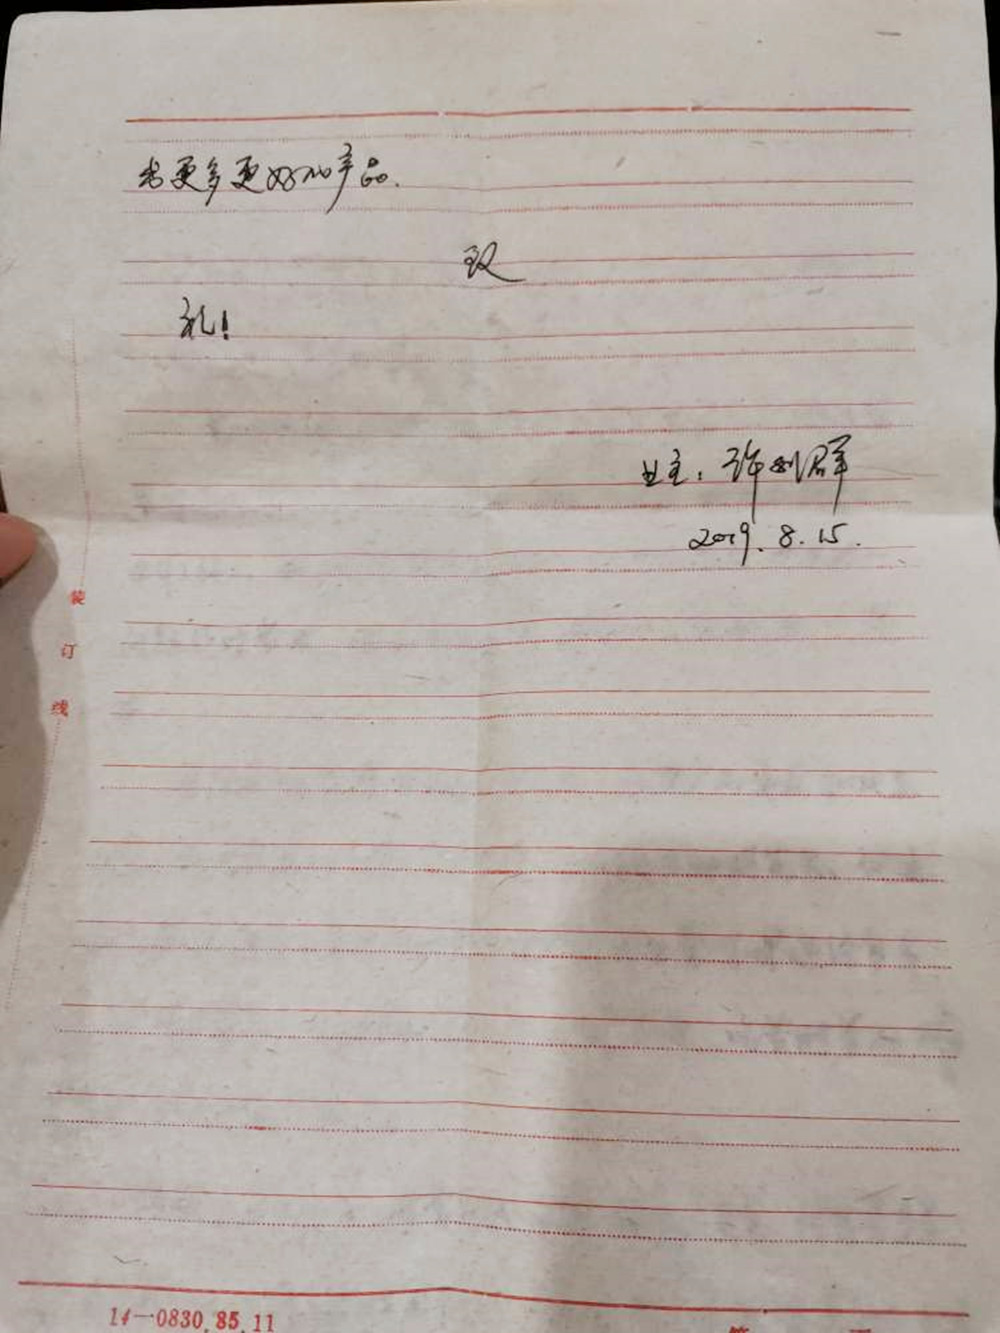 出更多更好的产品.
致
礼!
业主：许
2019.8.15.
装
订
线
14—0830.85.11